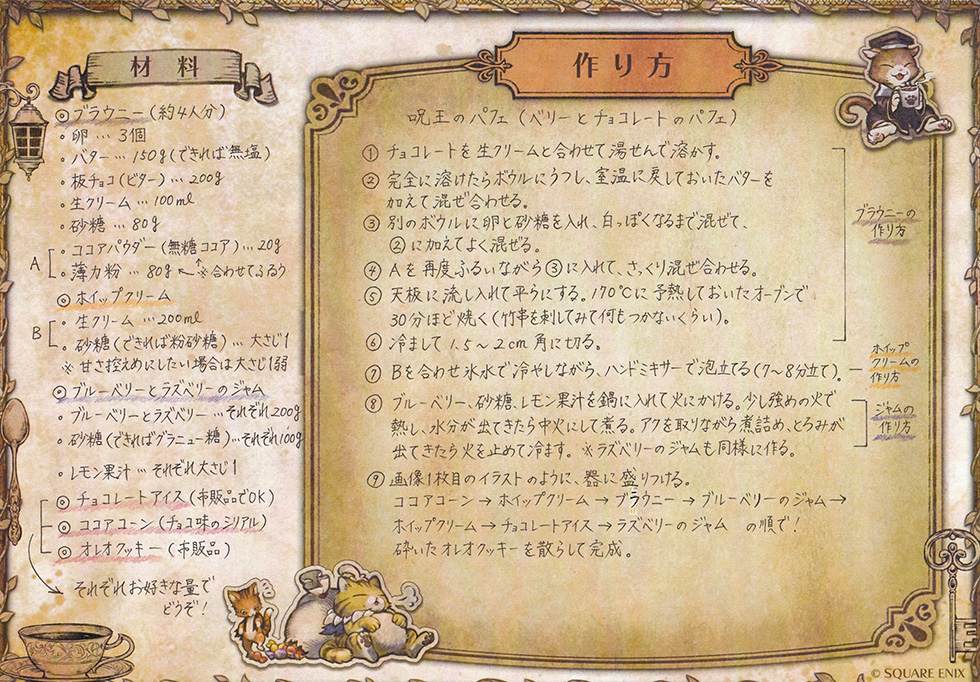 材料
◎ブラウニー(約4人分)
・卵…3個
・バター…150g(できれば無塩)
・板チョコ(ビター)…200g
・生クリーム…100ml
・砂糖…80g
A
・ココアパウダー(無糖ココア)…20g
・薄力粉…80g ←↑※合わせてふるう
◎ホイップクリーム
B
・生クリーム…200ml
・砂糖(できれば粉砂糖)…大さじ1
※甘さ控えめにしたい場合は大さじ1弱
◎ブルーベリーとラズベリーのジャム
・ブルーベリーとラズベリー…それぞれ200g
・砂糖(できればグラニュー糖)…それぞれ100g
・レモン果汁…それぞれ大さじ1
◎チョコレートアイス(市販品でOK)
◎ココアコーン(チョコ味のシリアル)
◎オレオクッキー(市販品)
それぞれお好きな量で
どうぞ!
作り方
呪王のパフェ(ベリーとチョコレートのパフェ)
①チョコレートを生クリームと合わせて湯せんで溶かす。
②完全に溶けたらボウルにうつし、室温に戻しておいたバターを
加えて混ぜ合わせる。
③別のボウルに卵と砂糖を入れ、白っぽくなるまで混ぜて、
②に加えてよく混ぜる。
④Aを再度ふるいながら③に入れて、さっくり混ぜ合わせる。
⑤天板に流し入れて平らにする。170℃に予熱しておいたオーブンで
30分ほど焼く(竹串を刺してみて何もつかないくらい)。
⑥冷まして1.5~2cm角に切る。
ブラウニーの
作り方
⑦Bを合わせ氷水で冷やしながら、ハンドミキサーで泡立てる(7~8分立て)。
ホイップ
クリームの
作り方
⑧ブルーベリー、砂糖、レモン果汁を鍋に入れて火にかける。少し強めの火で
熱し、水分が出てきたら中火にして煮る。アクを取りながら煮詰め、とろみが
出てきたら火を止めて冷ます。※ラズベリーのジャムも同様に作る。
ジャムの
作り方
⑨画像1枚目のイラストのように、器に盛りつける。
ココアコーン→ホイップクリーム→ブラウニー→ブルーベリーのジャム→
ホイップクリーム→チョコレートアイス→ラズベリーのジャム の順で!
砕いたオレオクッキーを散らして完成。
© SQUARE ENIX